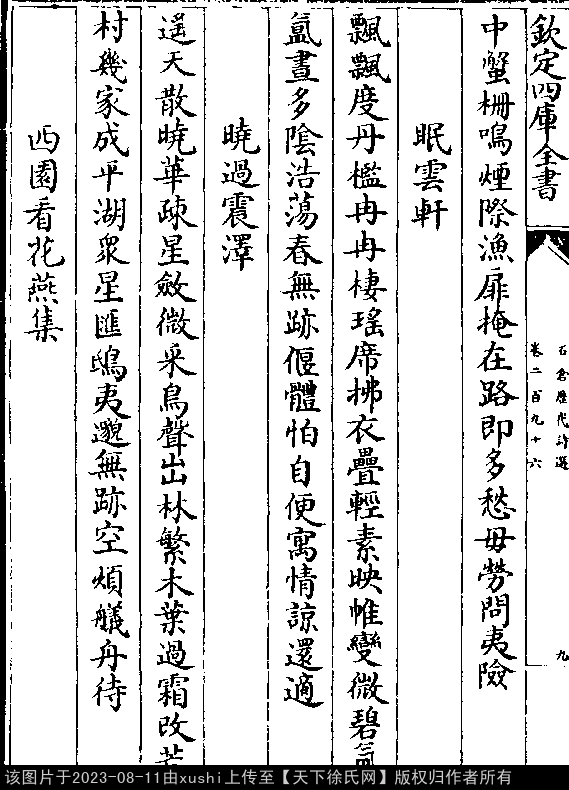 欽定四庫全書
石倉歷代詩選
卷二百九十六
九
中蟹柵鳴煙際漁扉掩在路即多愁毋勞問夷險
眠雲軒
飄飄度丹檻冉冉棲瑤席拂衣疊輕素映帷變微碧氤
氳晝多陰浩蕩春無跡偃體怕自便寓情諒還適
曉過震澤
遥天散曉華疎星斂微采鳥聲出林繁木葉過霜改荒
村幾家成平湖眾星匯鴟夷邈無跡空煩艤舟待
西園看花燕集
该图片于2023-08-11由xushi上传至【天下徐氏网】版权归作者所有